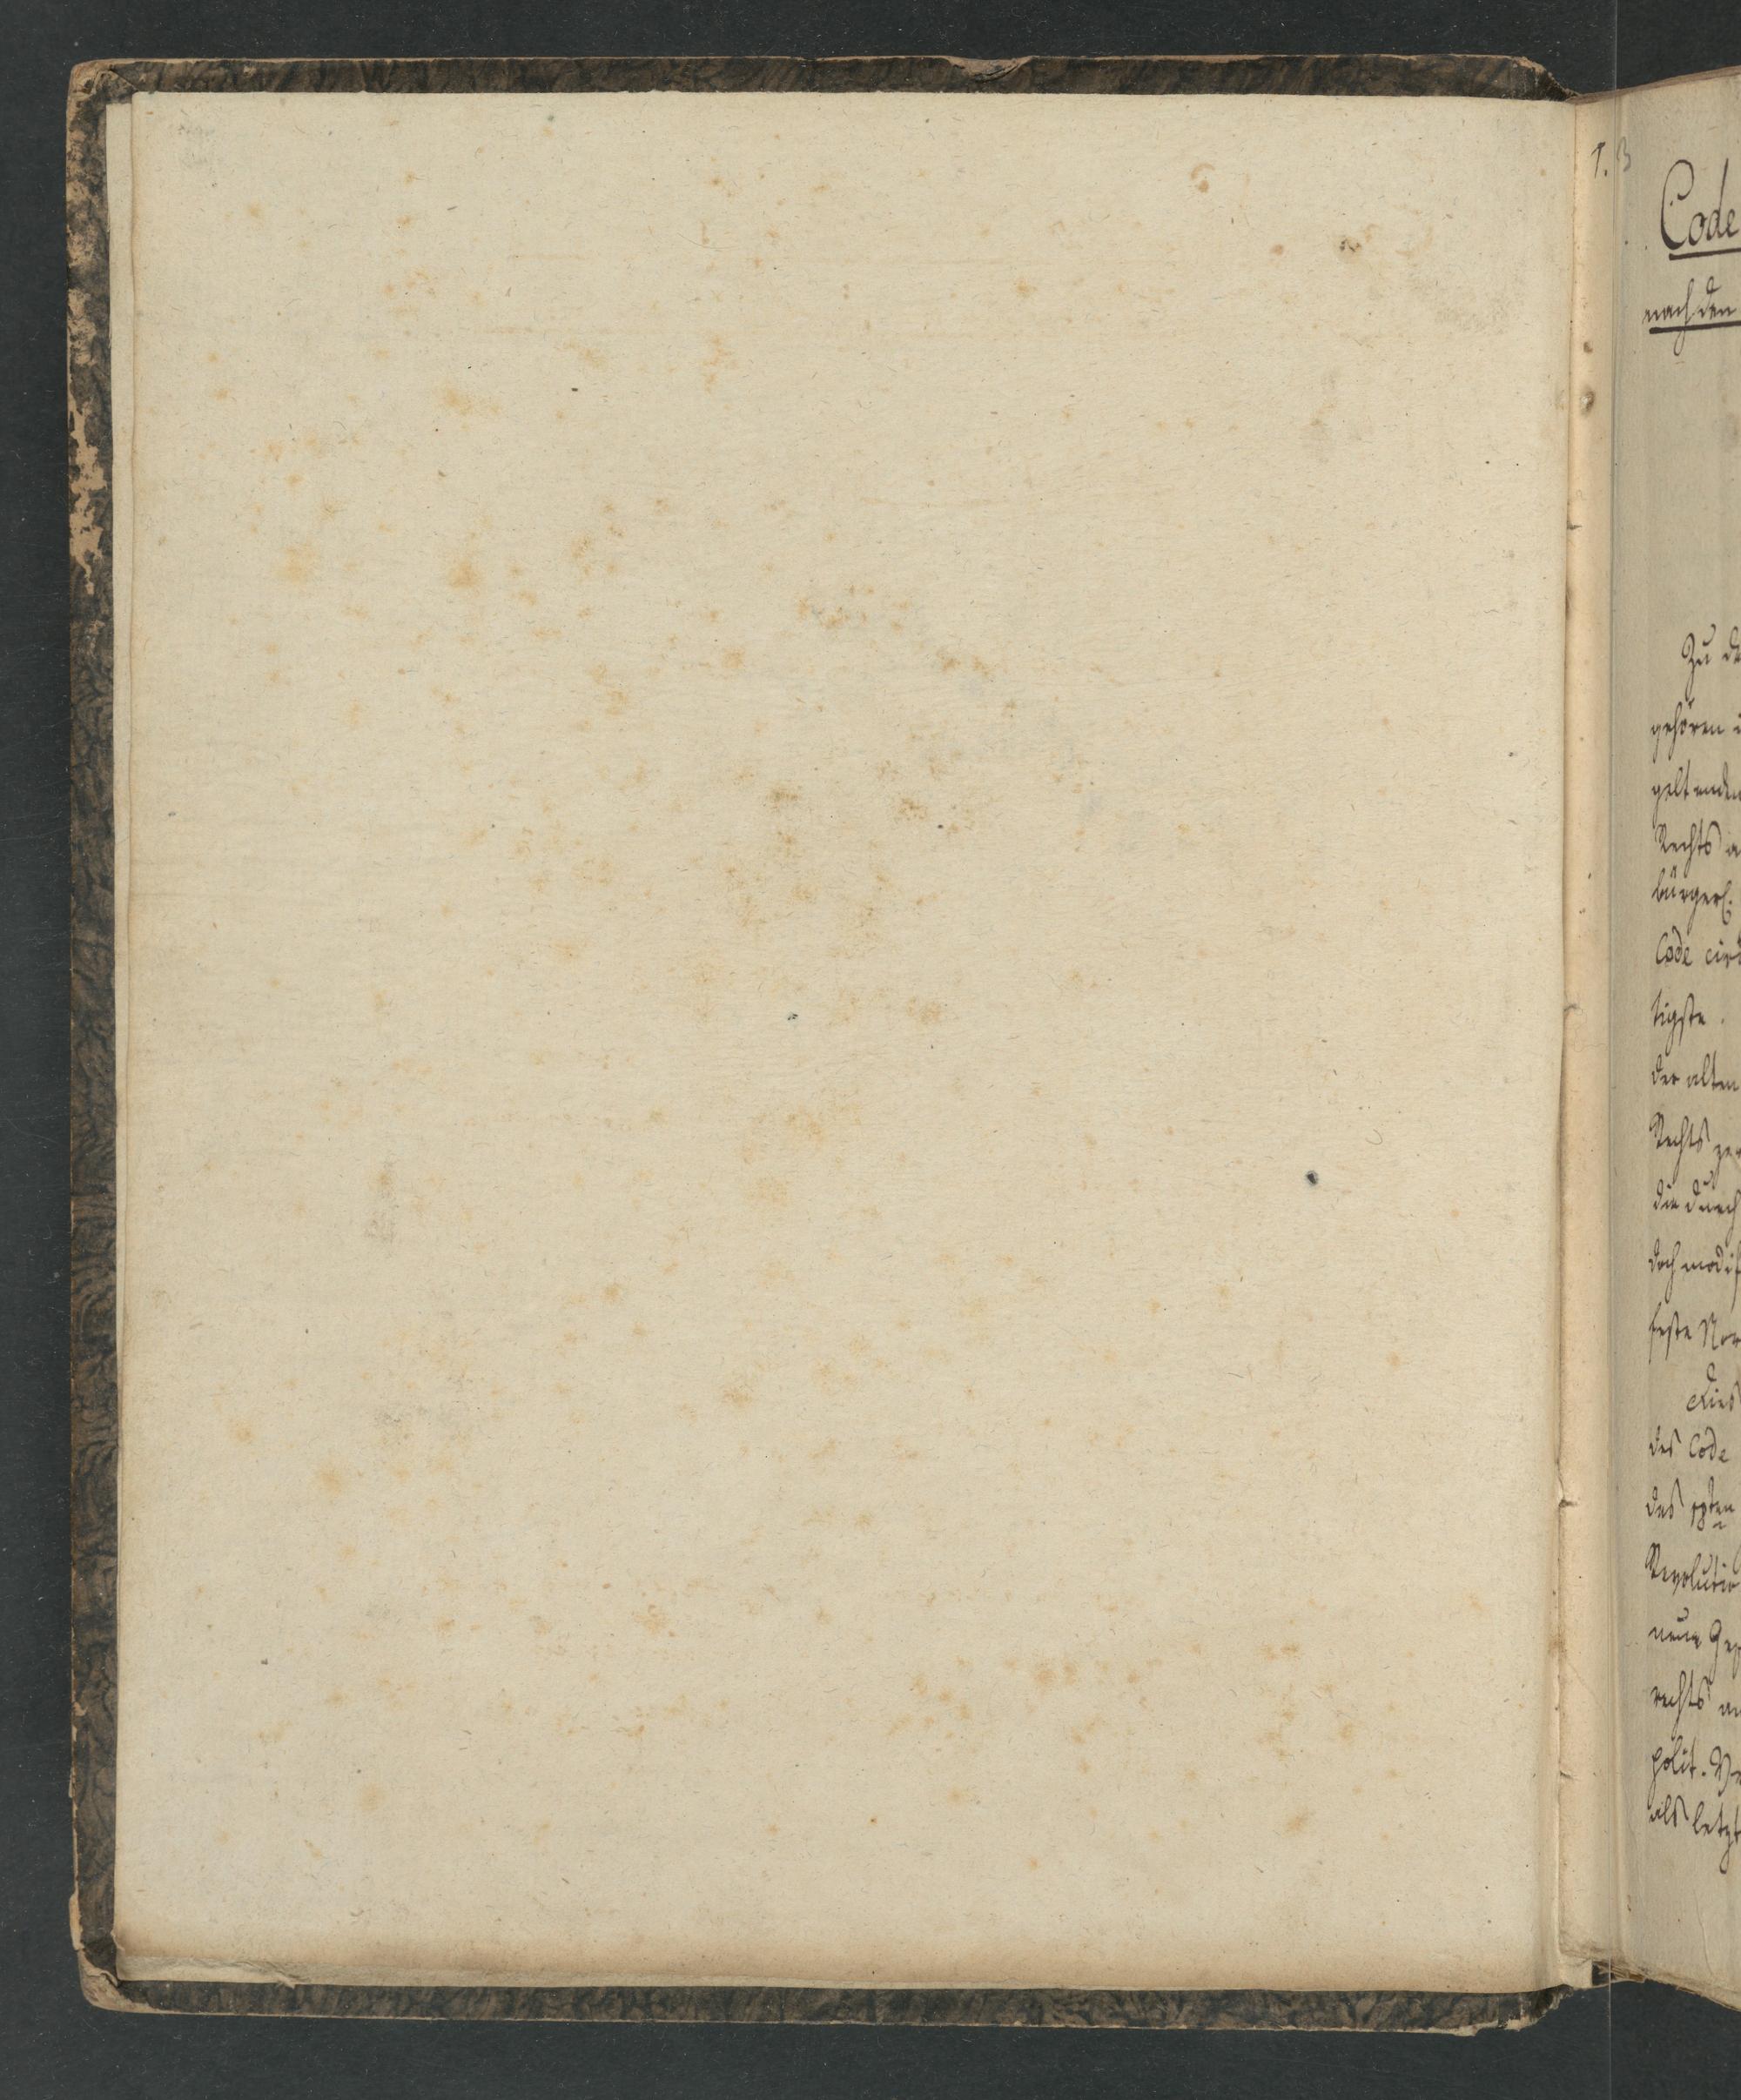 1. 3
Code
nach den
Zu de
gehören i
geltenden
Rechts a
bürgerl.
Code civi
tigste.
der alten
Rechts ger
die durch
doch modif
feste Nor
Dies
des Code
des 18ten
Revolutio
neue Ges
rechts an
polit. Ve
als letzt